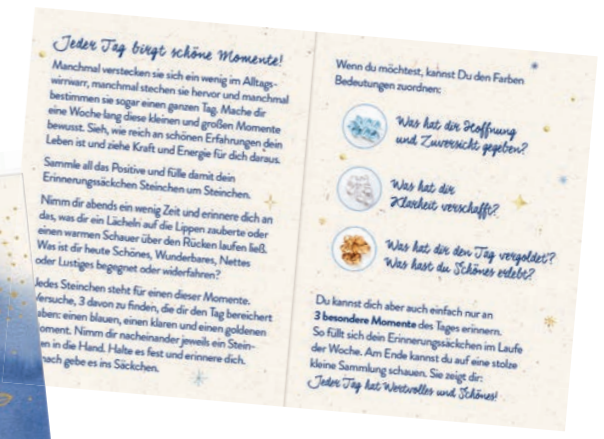 Jeder Tag birgt schöne Momente!
Manchmal verstecken sie sich ein wenig im Alltags-
wirrwarr, manchmal stechen sie hervor und manchmal
bestimmen sie sogar einen ganzen Tag. Mache dir
eine Woche lang diese kleinen und großen Momente
bewusst. Sieh, wie reich an schönen Erfahrungen dein
Leben ist und ziehe Kraft und Energie für dich daraus.
Sammle all das Positive und fülle damit dein
Erinnerungssäckchen Steinchen um Steinchen.
Nimm dir abends ein wenig Zeit und erinnere dich an
das, was dir ein Lächeln auf die Lippen zauberte oder
einen warmen Schauer über den Rücken laufen ließ.
Was ist dir heute Schönes, Wunderbares, Nettes
oder Lustiges begegnet oder widerfahren?
Jedes Steinchen steht für einen dieser Momente.
Versuche, 3 davon zu finden, die dir den Tag bereichert
aben: einen blauen, einen klaren und einen goldenen
oment. Nimm dir nacheinander jeweils ein Stein-
en in die Hand. Halte es fest und erinnere dich.
nach gebe es ins Säckchen.
Wenn du möchtest, kannst Du den Farben
Bedeutungen zuordnen:
Was hat dir Hoffnung
und Zuversicht gegeben?
Was hat dir
Klarheit verschafft?
Was hat dir den Tag vergoldet?
Was hast du Schönes erlebt?
Du kannst dich aber auch einfach nur an
3 besondere Momente des Tages erinnern.
So füllt sich dein Erinnerungssäckchen im Laufe
der Woche. Am Ende kannst du auf eine stolze
kleine Sammlung schauen. Sie zeigt dir:
Jeder Tag hat Wertvolles und Schönes!